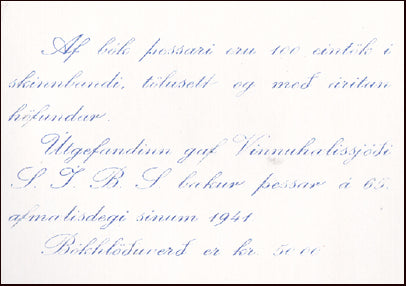 Af bók þessari eru 100 eintök í
skinnbandi, tölusett og með áritan
höfundar.
Útgefandinn gaf Vinnuhælissjóði
S. Í. B. S bækur þessar á 65.
afmælisdegi sínum 1941
Bókhlöðuverð er kr. 50.00